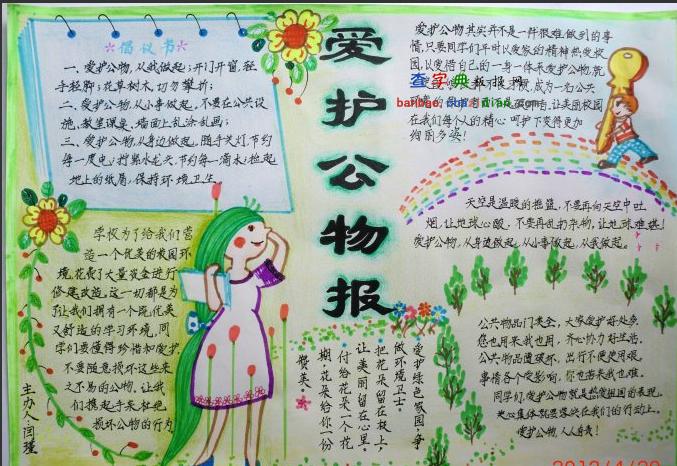 倡议书
一、爱护公物,从我做起;开门开窗,轻
手轻脚;花草树木,切勿攀折;
二、爱护公物,从小事做起,不要在公共设
施、教室课桌、墙面上乱涂乱画;
三、爱护公物,从身边做起,随手关灯,节约
每一度电;拧紧水龙头,节约每一滴水;捡起
地上的纸屑,保持环境卫生。
爱护公物报
爱护公物其实并不是一件很难做到的事
情,只要同学们平时以爱家的精神热爱校
园,以爱惜自己的一身一体来爱护公物,就
成为一名公共
让美丽校园
在我们每个人的精心呵护下变得更加
绚丽多姿!
查字典 板报网
banbao.chazidian.com
天空是温暖的摇篮,不要再向天空中吐
烟,让地球心酸,不要再乱扔杂物,让地球难堪!
爱护公物,从身边做起,从小事做起,从我做起。
学校为了给我们营
造一个优美的校园环
境,花费了大量资金进行
修建改造,这一切都是为
了让我们拥有一个既优美
又舒适的学习环境,同
学们要懂得珍惜和爱护,
不要随意损坏这些来
之不易的公物,让我
们携起手来杜绝
损坏公物的行为
主办人闫瑾
爱护绿色校园,争
做环境卫士,
把花朵留在枝上,
让美丽留在心里,
付给花朵一个花
期,花朵给你一份
赞美。
公共物品门类全,大家爱护好处多。
您也用来我也用,齐心协力好生活。
公共物品遭破坏,出行不便使用艰。
事情各个受影响,你也苦来我也难。
同学们,爱护公物就是热爱祖国的表现。
关心集体就要落实在我们的行动上。
爱护公物,人人有责!
2012/4/20